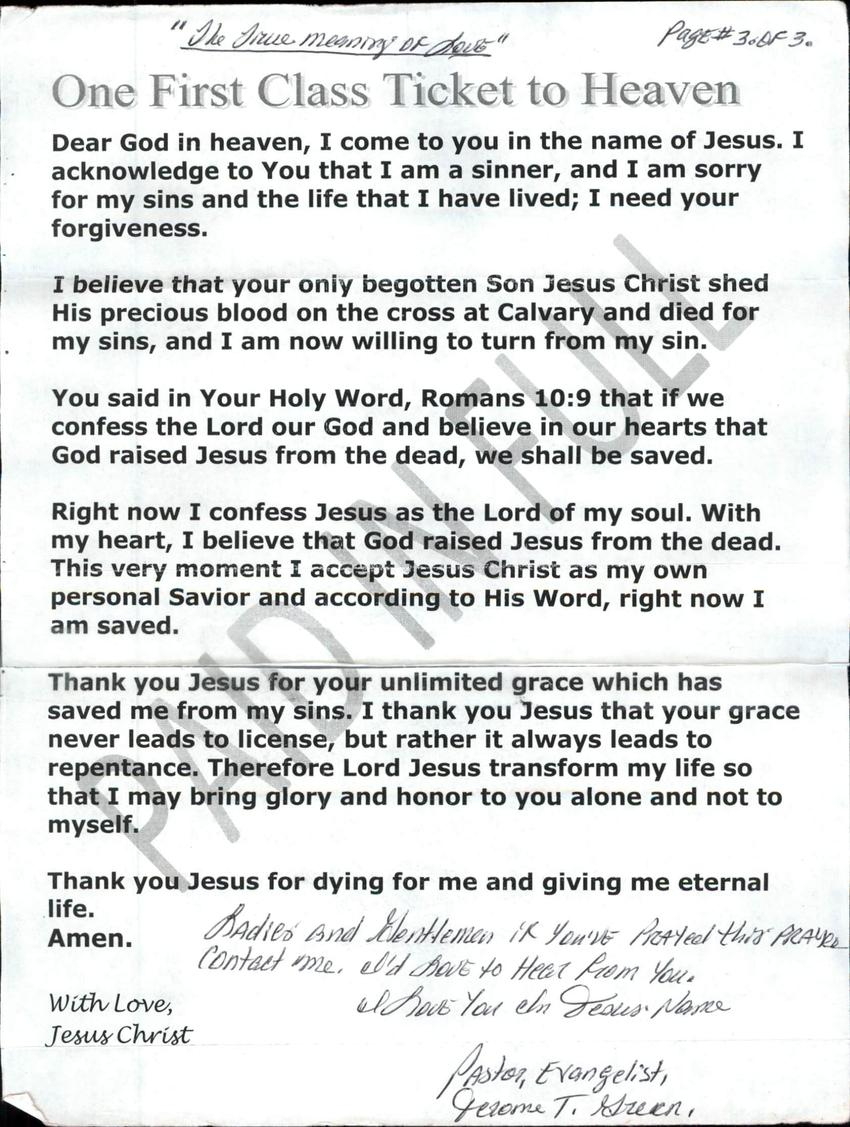 "The True meaning of Love"
Page# 3. of 3.
One First Class Ticket to Heaven
Dear God in heaven, I come to you in the name of Jesus. I
acknowledge to You that I am a sinner, and I am sorry
for my sins and the life that I have lived; I need your
forgiveness.
I believe that your only begotten Son Jesus Christ shed
His precious blood on the cross at Calvary and died for
my sins, and I am now willing to turn from my sin.
You said in Your Holy Word, Romans 10:9 that if we
confess the Lord our God and believe in our hearts that
God raised Jesus from the dead, we shall be saved.
Right now I confess Jesus as the Lord of my soul. With
my heart, I believe that God raised Jesus from the dead.
This very moment I accept Jesus Christ as my own
personal Savior and according to His Word, right now I
am saved.
Thank you Jesus for your unlimited grace which has
saved me from my sins. I thank you Jesus that your grace
never leads to license, but rather it always leads to
repentance. Therefore Lord Jesus transform my life so
that I may bring glory and honor to you alone and not to
myself.
Thank you Jesus for dying for me and giving me eternal
life.
Amen.
PAID IN FULL
Ladies and Gentlemen if You've Prayed this PRAYER
Contact me. I'd Love to Hear from You.
I Love You In Jesus Name
With Love,
Jesus Christ
Pastor, Evangelist,
Jerome T. Green.